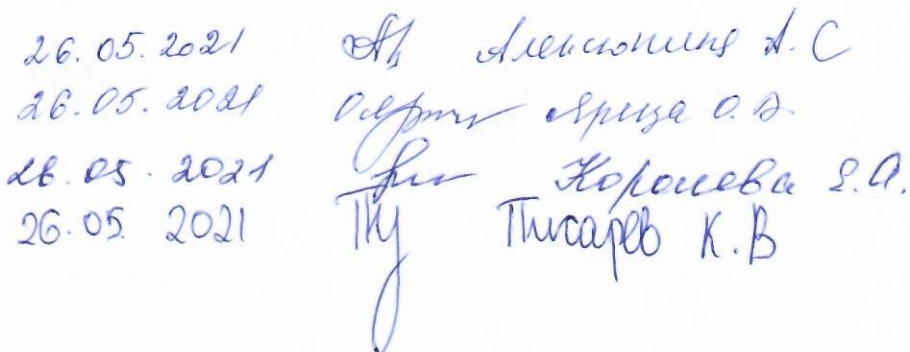 26.05.2021 Алексюнина А.С
26.05.2021 Ярица О.В.
26.05.2021 Королева Е.А.
26.05.2021 Писарев К.В